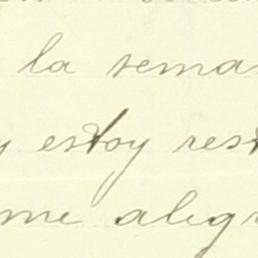 la sema
y estoy rest
me alegr